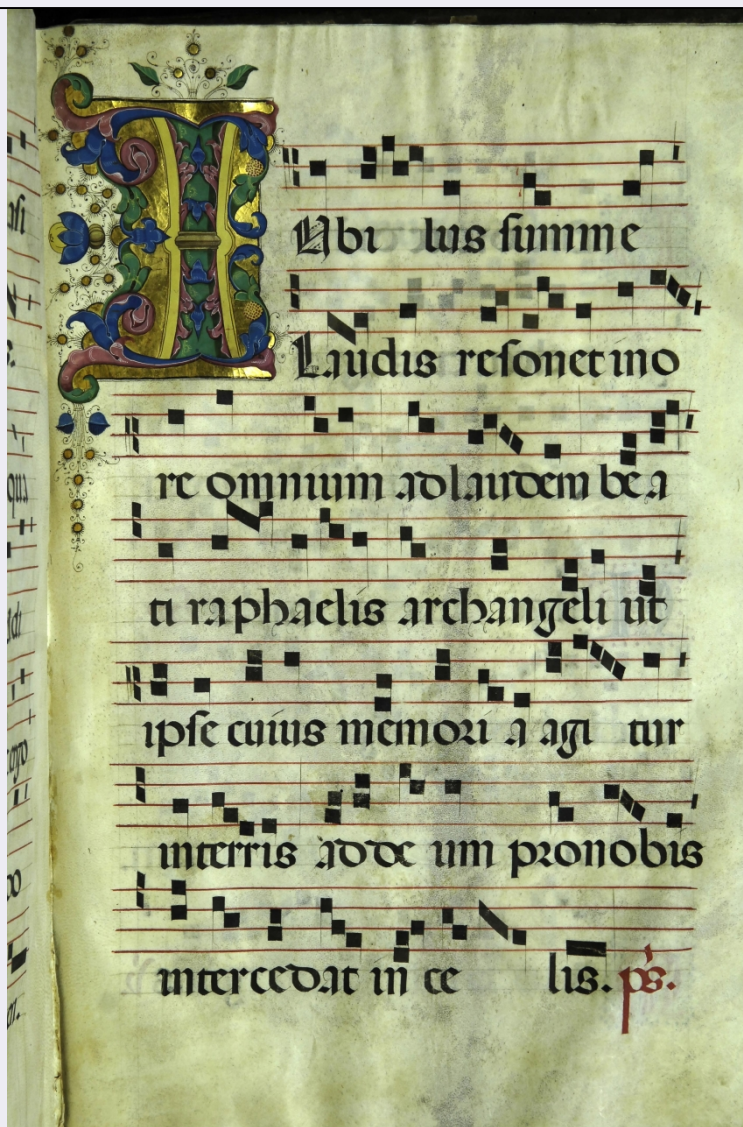 IUbi lus summe
Laudis resonet in o
re omnium ad laudem be a
ti raphaelis archangeli ut
ipse cuius memori a agi tur
in terris ad de um pro nobis
intercedat in ce lis. ps.